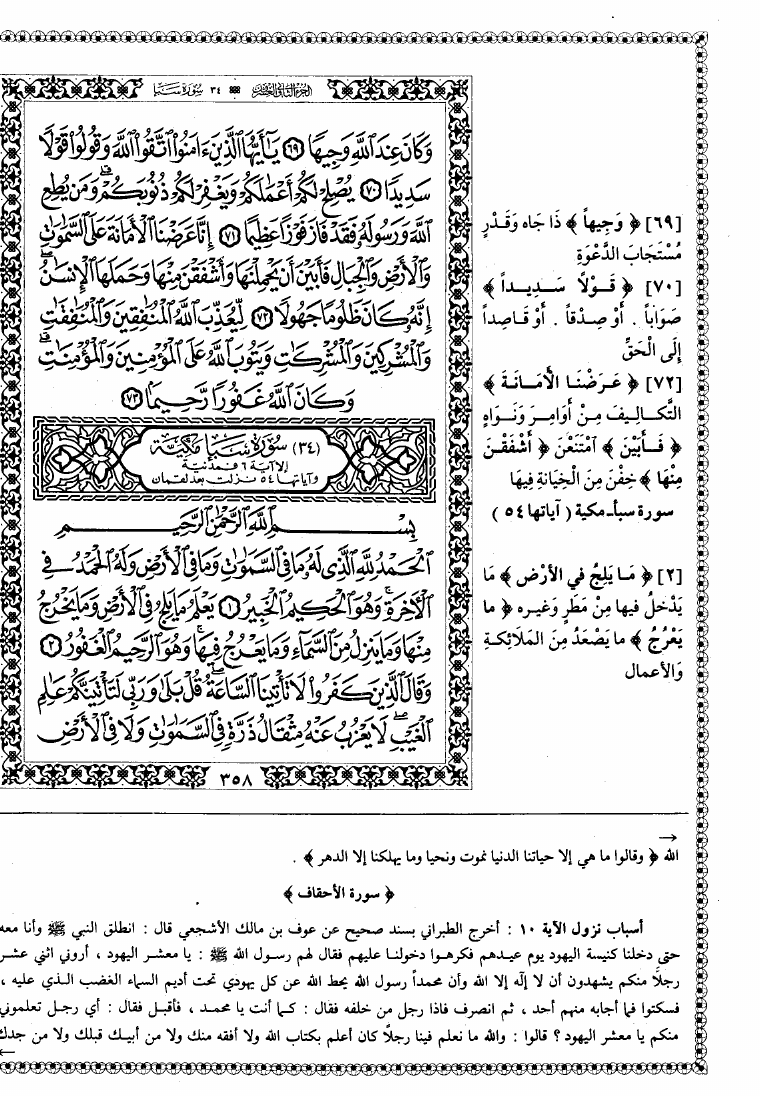 الجزء الثاني والعشرون ۞ ٣٤ سورة سبأ
وَكَانَ عِندَ ٱللَّهِ وَجِيهًا ٦٩ يَٰٓأَيُّهَا ٱلَّذِينَ ءَامَنُوا۟ ٱتَّقُوا۟ ٱللَّهَ وَقُولُوا۟ قَوْلًا
سَدِيدًا ٧٠ يُصْلِحْ لَكُمْ أَعْمَٰلَكُمْ وَيَغْفِرْ لَكُمْ ذُنُوبَكُمْ ۗ وَمَن يُطِعِ
ٱللَّهَ وَرَسُولَهُۥ فَقَدْ فَازَ فَوْزًا عَظِيمًا ٧١ إِنَّا عَرَضْنَا ٱلْأَمَانَةَ عَلَى ٱلسَّمَٰوَٰتِ
وَٱلْأَرْضِ وَٱلْجِبَالِ فَأَبَيْنَ أَن يَحْمِلْنَهَا وَأَشْفَقْنَ مِنْهَا وَحَمَلَهَا ٱلْإِنسَٰنُ ۖ
إِنَّهُۥ كَانَ ظَلُومًا جَهُولًا ٧٢ لِّيُعَذِّبَ ٱللَّهُ ٱلْمُنَٰفِقِينَ وَٱلْمُنَٰفِقَٰتِ
وَٱلْمُشْرِكِينَ وَٱلْمُشْرِكَٰتِ وَيَتُوبَ ٱللَّهُ عَلَى ٱلْمُؤْمِنِينَ وَٱلْمُؤْمِنَٰتِ ۗ
وَكَانَ ٱللَّهُ غَفُورًا رَّحِيمًا ٧٣
(٣٤) سورة سبأ مكية
إلا آية ٦ فمدنية
وآياتها ٥٤ نزلت بعد لقمان
بِسْمِ ٱللَّهِ ٱلرَّحْمَٰنِ ٱلرَّحِيمِ
ٱلْحَمْدُ لِلَّهِ ٱلَّذِى لَهُۥ مَا فِى ٱلسَّمَٰوَٰتِ وَمَا فِى ٱلْأَرْضِ وَلَهُ ٱلْحَمْدُ فِى
ٱلْءَاخِرَةِ ۚ وَهُوَ ٱلْحَكِيمُ ٱلْخَبِيرُ ١ يَعْلَمُ مَا يَلِجُ فِى ٱلْأَرْضِ وَمَا يَخْرُجُ
مِنْهَا وَمَا يَنزِلُ مِنَ ٱلسَّمَآءِ وَمَا يَعْرُجُ فِيهَا ۚ وَهُوَ ٱلرَّحِيمُ ٱلْغَفُورُ ٢
وَقَالَ ٱلَّذِينَ كَفَرُوا۟ لَا تَأْتِينَا ٱلسَّاعَةُ ۖ قُلْ بَلَىٰ وَرَبِّى لَتَأْتِيَنَّكُمْ عَٰلِمِ
ٱلْغَيْبِ ۖ لَا يَعْزُبُ عَنْهُ مِثْقَالُ ذَرَّةٍ فِى ٱلسَّمَٰوَٰتِ وَلَا فِى ٱلْأَرْضِ
٣٥٨
[٦٩] ﴿ وَجِيهاً ﴾ ذَا جَاه وَقَدْرٍ
مُسْتَجَابَ الدَّعْوَةِ
[٧٠] ﴿ قَوْلاً سَدِيداً ﴾
صَوَاباً . أَوْ صِدْقاً . أَوْ قَاصِداً
إِلَى الْحَقِّ
[٧٢] ﴿ عَرَضْنَا الأَمَانَةَ ﴾
التَّكَالِيفَ مِنْ أَوَامِرَ وَنَوَاهٍ
﴿ فَأَبَيْنَ ﴾ امْتَنَعْنَ ﴿ أَشْفَقْنَ
مِنْهَا ﴾ خِفْنَ مِنَ الْخِيَانَةِ فِيهَا
سورة سبأ ـ مكية ( آياتها ٥٤ )
[٢] ﴿ مَا يَلِجُ في الأَرْض ﴾ مَا
يَدْخلُ فيها مِنْ مَطَرٍ وَغيره ﴿ ما
يَعْرُجُ ﴾ ما يَصْعَدُ مِنَ المَلَائِكةِ
وَالأعمال
→
الله ﴿ وقالوا ما هي إلا حياتنا الدنيا نموت ونحيا وما يهلكنا إلا الدهر ﴾ .
﴿ سورة الأحقاف ﴾
أسباب نزول الآية ١٠ : أخرج الطبراني بسند صحيح عن عوف بن مالك الأشجعي قال : انطلق النبي ﷺ وأنا معه
حتى دخلنا كنيسة اليهود يوم عيدهم فكرهوا دخولنا عليهم فقال لهم رسول الله ﷺ : يا معشر اليهود ، أروني اثني عشر
رجلاً منكم يشهدون أن لا إله إلا الله وأن محمداً رسول الله يحط الله عن كل يهودي تحت أديم السماء الغضب الذي عليه ،
فسكتوا فما أجابه منهم أحد ، ثم انصرف فاذا رجل من خلفه فقال : كما أنت يا محمد ، فأقبل فقال : أي رجل تعلموني
منكم يا معشر اليهود ؟ قالوا : والله ما نعلم فينا رجلاً كان أعلم بكتاب الله ولا أفقه منك ولا من أبيك قبلك ولا من جدك
←